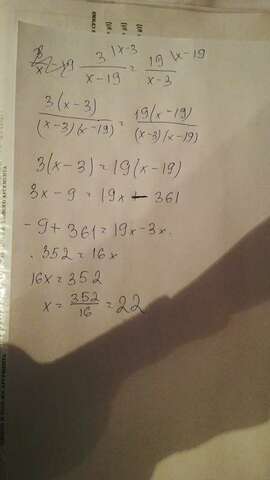 3/(x-19) \x-3 = 19/(x-3) \x-19
3(x-3)/((x-3)(x-19)) = 19(x-19)/((x-3)(x-19))
3(x-3)=19(x-19)
3x-9=19x-361
-9+361=19x-3x
352=16x
16x=352
x=352/16=22